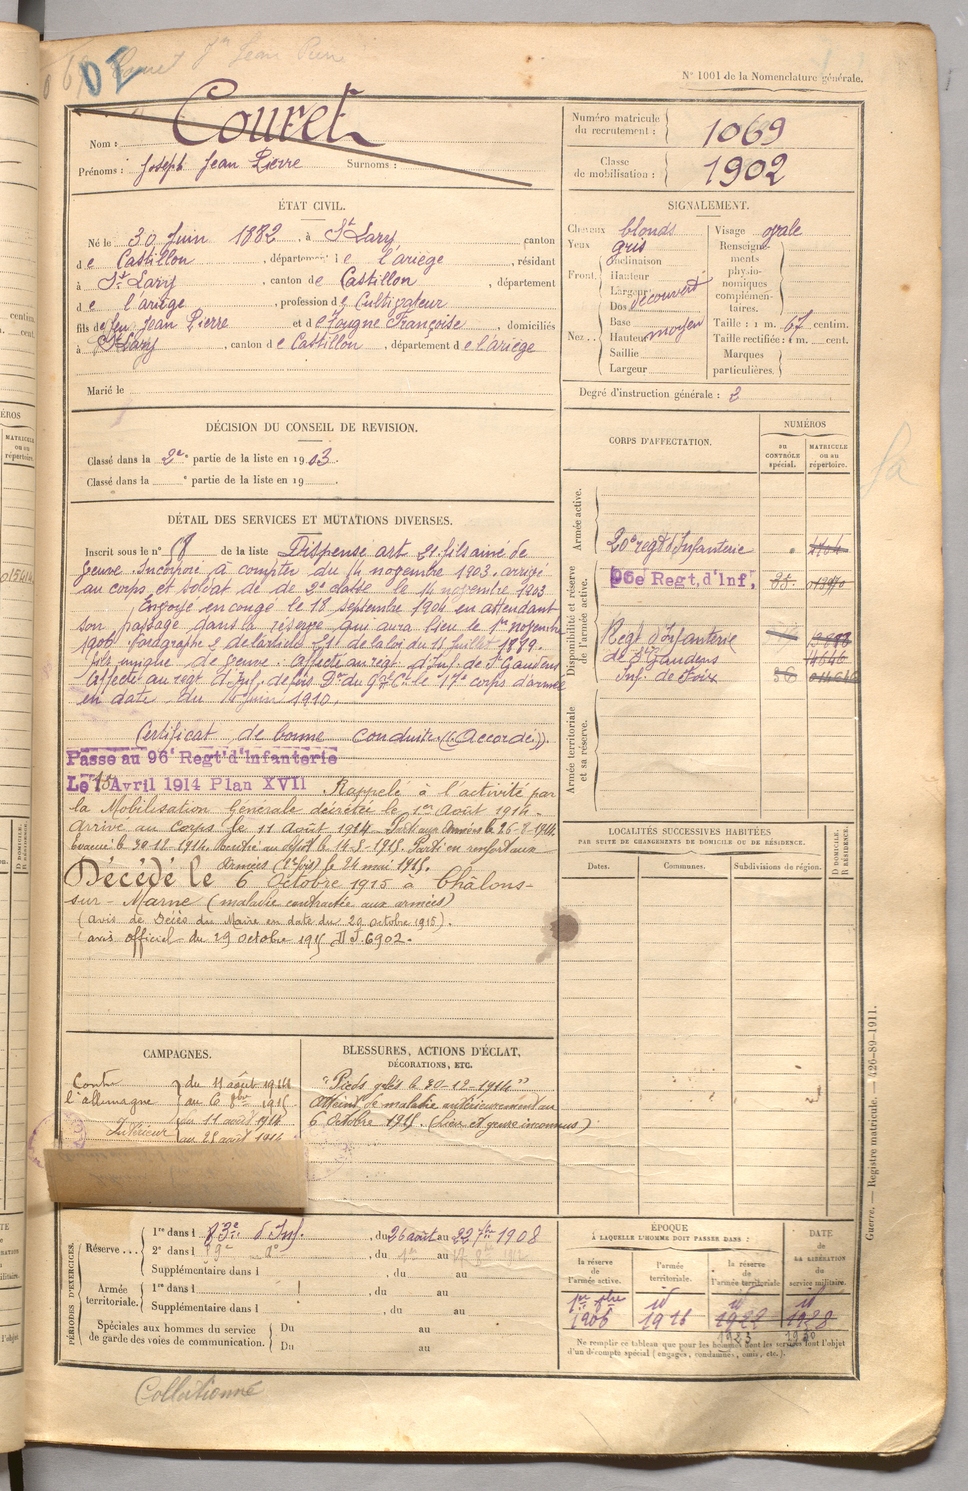 Couret Jn Jean Pierre
N° 1001 de la Nomenclature générale.
Nom : Couret
Prénoms : Joseph Jean Pierre Surnoms :
Numéro matricule du recrutement : 1069
Classe de mobilisation : 1902
ÉTAT CIVIL.
Né le 30 Juin 1882, à St Lary, canton
de Castillon, département de l'ariège, résidant
à St Lary, canton de Castillon, département
de l'ariège, profession de Cultivateur
fils de feu Jean Pierre et de Fougne Françoise, domiciliés
à St Lary, canton de Castillon, département de l'ariège
Marié le
SIGNALEMENT.
Cheveux blonds
Yeux gris
Front. Inclinaison
Hauteur
Largeur découvert
Nez.. Dos
Base
Hauteur moyen
Saillie
Largeur
Visage ovale
Renseignements physionomiques complémentaires.
Taille : 1 m. 67 centim.
Taille rectifiée : 1 m. cent.
Marques particulières.
Degré d'instruction générale : 2
DÉCISION DU CONSEIL DE REVISION.
Classé dans la 2e partie de la liste en 1903.
Classé dans la e partie de la liste en 19
DÉTAIL DES SERVICES ET MUTATIONS DIVERSES.
Inscrit sous le n° 58 de la liste Dispensé art 21. fils ainé de
veuve. Incorporé à compter du 14 novembre 1903. arrivé
au corps et soldat de de 2e classe le 14 novembre 1903
Envoyé en congé le 18 septembre 1904 en attendant
son passage dans la réserve qui aura lieu le 1er novembre
1906. Paragraphe 2 de l'article 21 de la loi du 15 Juillet 1889.
fils unique de veuve. Affecté au régt d'Inf. de St Gaudens
Affecté au régt d'Inf. de Foix Dr du Gal Ct le 17e corps d'armée
en date du Juin 1910.
Certificat de bonne conduite "Accordé".
Passé au 96e Regt d'Infanterie
Le 15 Avril 1914 Plan XVII Rappelé à l'activité par
la Mobilisation Générale décrétée le 1er Août 1914.
Arrivé au corps le 11 Août 1914. Parti aux Armées le 26-8-1914
Evacué le 30-12-1914. Rentré au dépôt le 14-5-1915. Parti en renfort aux
Armées (2e fois) le 24 mai 1915.
Décédé le 6 Octobre 1915 à Châlons-
sur-Marne (maladie contractée aux armées)
(avis de Décès du Maire en date du 20 octobre 1915).
avis officiel du 29 octobre 1915 D J. 6902.
CORPS D'AFFECTATION.
NUMÉROS
au CONTRÔLE spécial.
MATRICULE ou au répertoire.
Armée active.
Disponibilité et réserve de l'armée active.
20e régt d'Infanterie
96e Regt, d'Inf.
Régt d'Infanterie
de St Gaudens
Inf. de Foix 36
Armée territoriale et sa réserve.
LOCALITÉS SUCCESSIVES HABITÉES
PAR SUITE DE CHANGEMENTS DE DOMICILE OU DE RÉSIDENCE.
Dates.
Communes.
Subdivisions de région.
D DOMICILE. R RÉSIDENCE.
CAMPAGNES.
Contre l'allemagne du 11 août 1914
au 6 8bre 1915
Intérieur du 11 août 1914
au 25 août 1914
BLESSURES, ACTIONS D'ÉCLAT,
DÉCORATIONS, ETC.
"Pieds gelés le 30-12-1914"
Atteint de maladie antérieurement au
6 Octobre 1915. (Lieu et genre inconnus)
PÉRIODES D'EXERCICES.
Réserve... 1re dans l 83e d'Inf., du 26 août au 22 7bre 1908
2e dans l, du 1er au 17 1912
Supplémentaire dans l, du au
Armée territoriale. 1re dans l, du au
Supplémentaire dans l, du au
Spéciales aux hommes du service de garde des voies de communication. Du au
Du au
ÉPOQUE
À LAQUELLE L'HOMME DOIT PASSER DANS :
la réserve de l'armée active.
l'armée territoriale.
la réserve de l'armée territoriale
DATE de LA LIBÉRATION du service militaire.
1er 9bre 1906
id 1916
id 1922
id 1928
1923
1930
Ne remplir ce tableau que pour les hommes dont les services font l'objet
d'un décompte spécial (engagés, condamnés, omis, etc.).
Guerre. — Registre matricule. — 426-89-1911.
Collationné